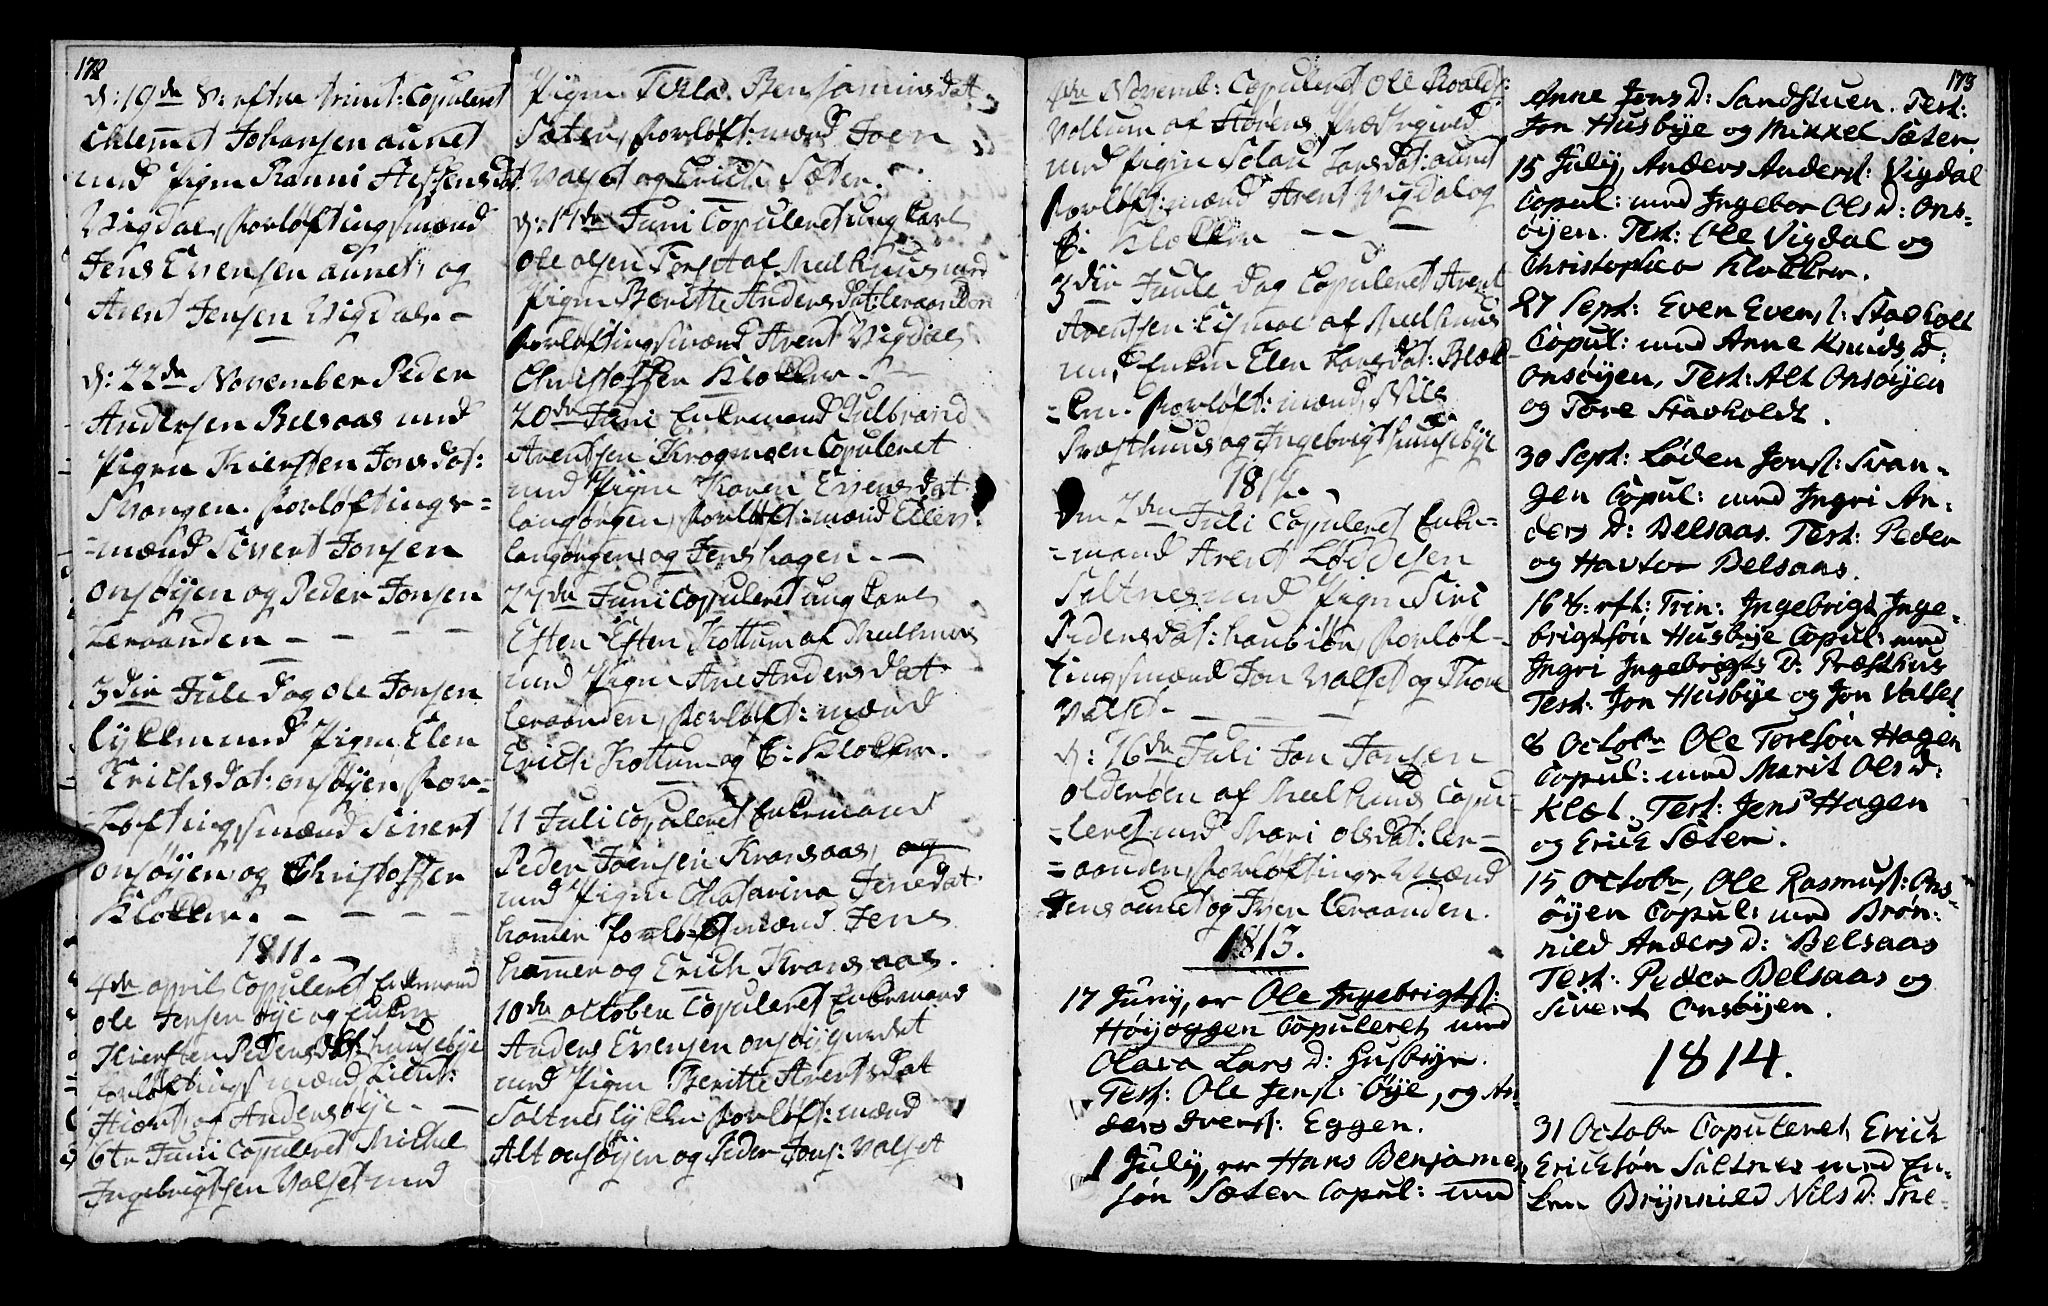 172
d: 19de S: efter trinit: Copuleret
Clemet Johansen aunet
med Pigen Ranni Steffensdat:
Vigdal, forløftingsmænd
Jens Evensen aunet, og
Arent Jensen Vigdal. –
d: 22de November Peder
Andersen Belsaas med
Pigen Kiersten Jonsdat:
Svangen. forløftings=
=mænd Sivert Jonsen
onsøÿen og Peder Jonsen
Leraanden – – – –
3die Jule dag Ole Jonsen
lykken med Pigen Elen
Erichsdat: onsøyen, for=
løftingsmænd Sivert
onsøÿen og Christoffer
Klokker. – – – –
1811. –
4de april Copuleret Enkemand
Ole Jensen øye og Enken
Kiersten Pedersdat: huusebÿe
forløftingsmænd Lieut:
Hiort, og Anders øÿe. –
6te Juni Copuleret Michel
Ingebrigtsen Valset med
Pigen Beniaminsdat
Sæter, forløft:mænd Joen
Valset og Erich Sæter.
d: 17de Juni Copuleret ung karl
Ole olsen af Meelhuus med
Pigen Beritte Andersdat: leraanden
forløftingsmænd Arent Vigdal
Christoffer Klokker. –
20de Juni Enkemand Gulbrand
Arentsen Krogmoen Copuleret
med Pigen Karen Evensdat
langørgen, forløft:mænd Ellev
langørgen, og Jens hagen. –
27de Juni Copuleret ung karl
Esten Esten Kottum af Meelhuus
med Pigen Ane Andersdat
leraanden, forløft:mænd
Erich Kottum og C: Klokker.
11 Juli Copuleret Enkemand
Peder Joensen Kransaas, og
med Pigen Chatarina Jensdat
hammer forløft:mænd Jens
hammer og Erich Kransaas.
10de october Copuleret Enkemand
Anders Evensen onsøÿ
med Pigen Beritte Arentsdat
Saltneslykken forløft:mænd
Alt onsøÿen og Peder Jons: Valset
173
4de Novemb: Copuleret Ole Roalds:
Vollum af Hørens Præstegield
med Pigen Larsdat: aunet
forløft:mænd Arent Vigdal og
C: Klokker – – –
3die Juule dag Copuleret Arent
Arentsen af Meelhuus
med Enken Elen Larsdat: Blæk=
=ken. forløft:mænd, Nils
Præsthuus og Ingebrigt huusebÿe
1812. –
Den 2den Juli Copuleret Enke=
=mand Arent Løddesen
Saltnes med Pigen Siri
Pedersdat: forløf=
tingsmænd Jon Valset og Thore
Valset. – – –
d: 16de Juli Jon Jonsen
olderøen af Meelhuus Copu=
=leret med Mari olsdat: ler=
=aanden, forløftings mænd
Jens aunet og Iver leraanden.
1813.
17 Junÿ, er Ole Ingebrigtsſ:
Høÿoggen Copuleret med
Olava Lars D: Husbÿe.
Test: Ole Jensſ: Øÿe, og An-
ders Iversſ: Eggen.
1 Julÿ, er Hans Benjamen
søn Sæter Copul: med
Anne Jons D: Sandstuen. Test:
Jon Husbÿe og Mikkel Sæter.
15 Julÿ, Anders Andersſ: Vigdal
Copul: med Ingebor Ols D: Ons-
øÿen. Test: Ole Vigdal og
Christopher Klokker.
27 Sept: Even Evensſ: Stavholt
Copul: med Anne Knuds D:
Onsøÿen, Test: Alt Onsøÿen
og Tore Stavholdt.
30 Sept: Løden Jonsſ: Svan-
gen Copul: med Ingri An-
ders D: Belsaas. Test: Peder
og Havtor Belsaas.
16 S: eft: Trin: Ingebrigt Inge-
brigtsøn Husbÿe Copul: med
Ingri Ingebrigts D: Præsthus
Test: Jon Husbÿe og Jon Valset.
8 Octobr Ole Toresøn Hagen
Copul: med Marit Ols D:
Klæt. Test: Jens Hagen
og Erick Sæter.
15 Octobr, Ole Rasmusſ: Ons-
øÿen Copul: med Brøn:
nild Anders D: Belsaas
Test: Peder Belsaas og
Sivert Onsøÿen.
1814.
31 Octobr Copuleret Erick
Ericksøn Saltnes med En-
ken Brÿnnild Nils D: Sne-